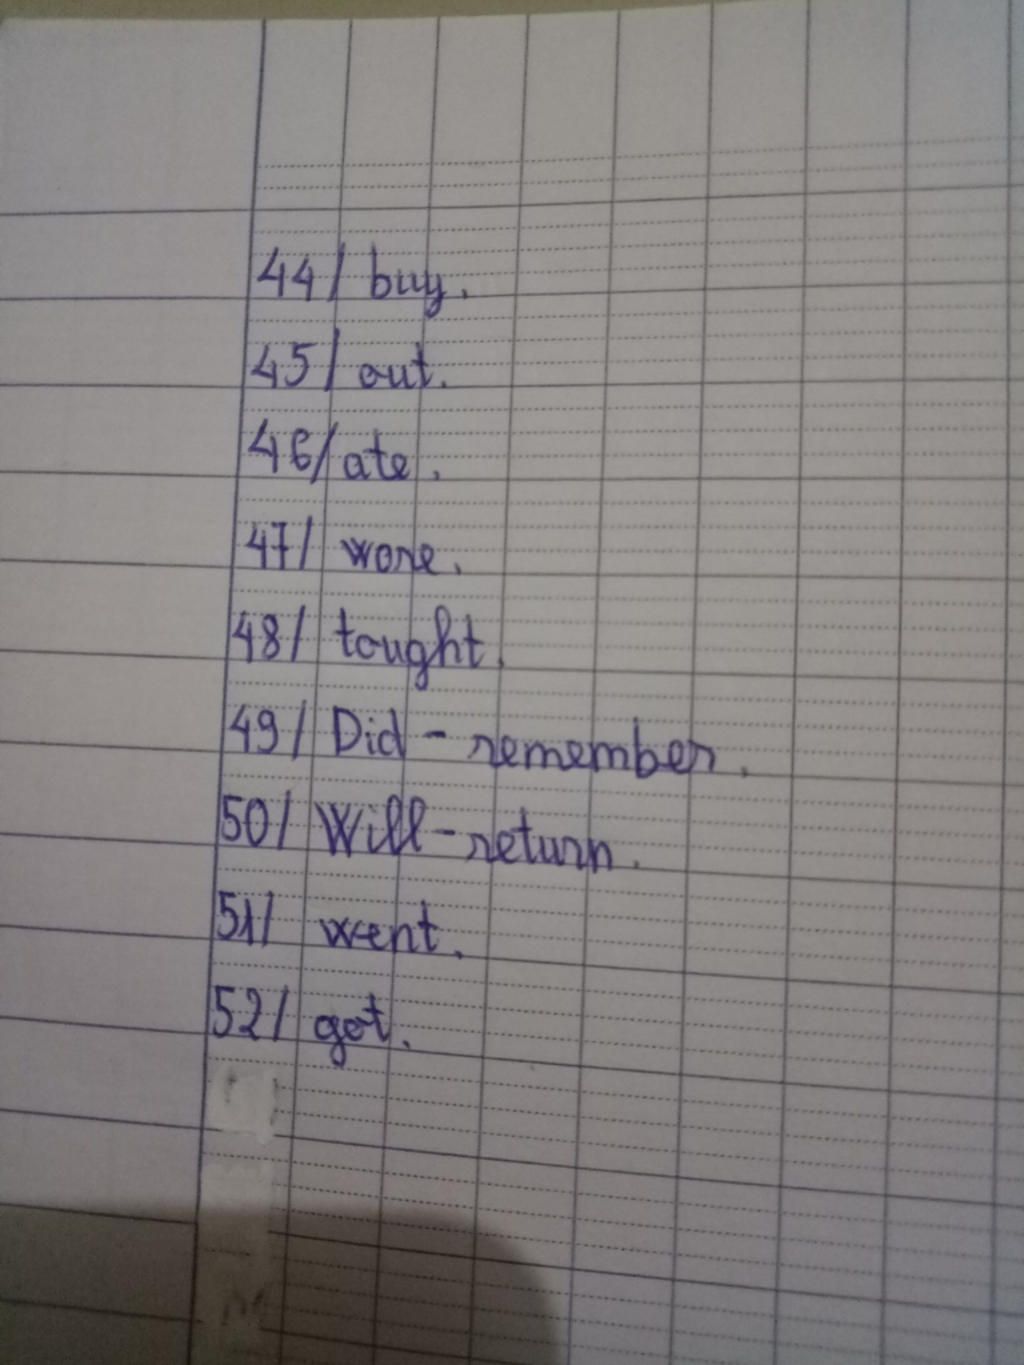 44/ buy.
45/ out.
46/ ate.
47/ wore.
48/ tought.
49/ Did - remember.
50/ Will - return.
51/ went.
52/ got.